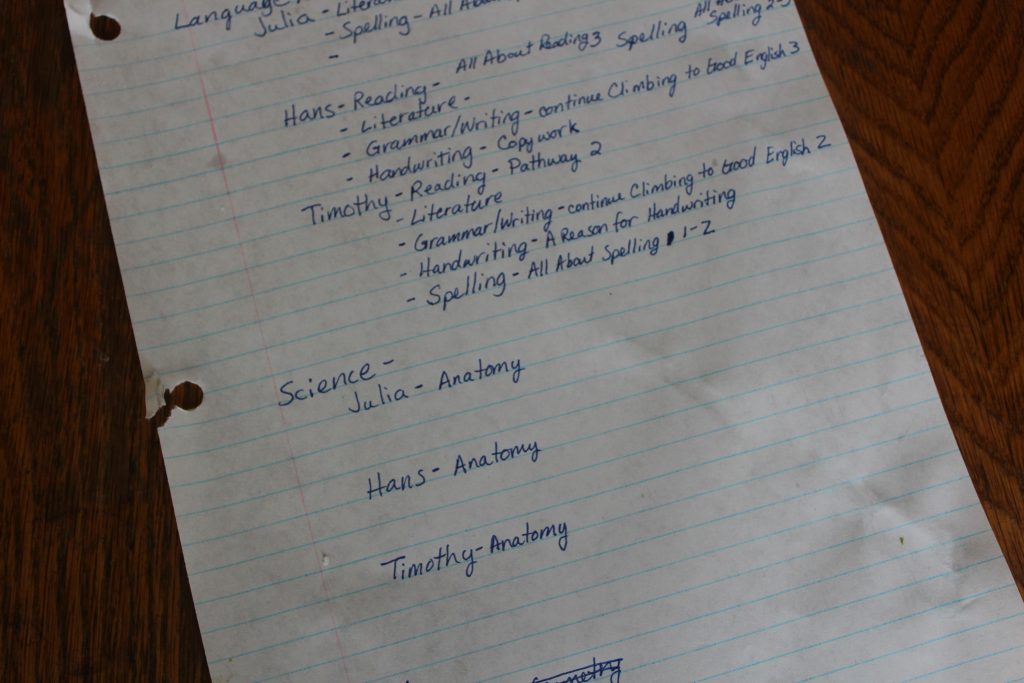 Language
Julia -
- Spelling - All
-
Hans - Reading - All About Reading 3 Spelling All Spelling 2-3
- Literature -
- Grammar/Writing - continue Climbing to Good English 3
- Handwriting - Copywork
Timothy - Reading - Pathway 2
- Literature
- Grammar/Writing - continue Climbing to Good English 2
- Handwriting - A Reason for Handwriting
- Spelling - All About Spelling 1-2
Science -
Julia - Anatomy
Hans - Anatomy
Timothy - Anatomy